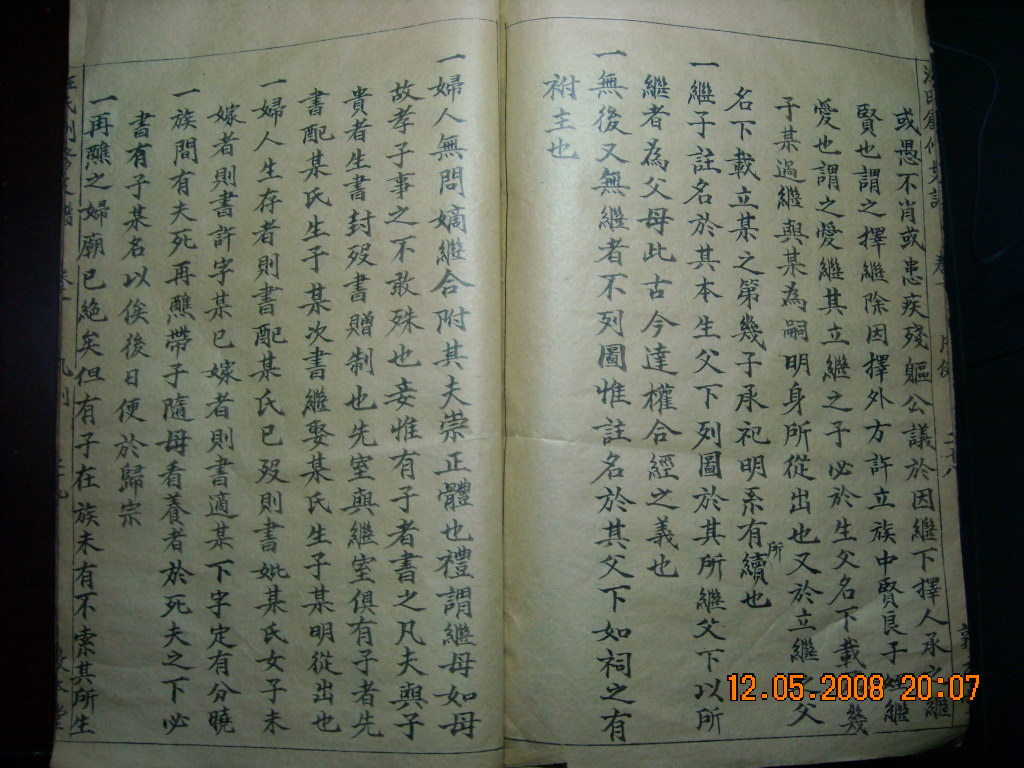 或愚不肖或患疾殘軀公議於因繼下擇人承之繼
賢也謂之擇繼除因擇外方許立族中賢良子
愛也謂之愛繼其立繼之子必於生父名下載幾
子某過繼與某為嗣明身所從出也又於立繼父
名下載立某之第幾子承祀明系有所續也
一繼子註名於其本生父下列圖於其所繼父下以所
繼者為父母此古今達權合經之義也
一無後又無繼者不列圖惟註名於其父下如祠之有
祔主也
一婦人無問嫡繼合附其夫崇正體也禮謂繼母如母
故孝子事之不敢殊也妾惟有子者書之凡夫與子
貴者生書封歿書贈制也先室與繼室俱有子者先
書配某氏生子某次書繼娶某氏生子某明從出也
一婦人生存者則書配某氏已歿則書妣某氏女子未
嫁者則書許字某已嫁者則書適某下字定有分曉
一族間有夫死再醮帶子隨母看養者於死夫之下必
書有子某名以俟後日便於歸宗
一再醮之婦廟已絕矣但有子在族未有不索其所生
12.05.2008 20:07